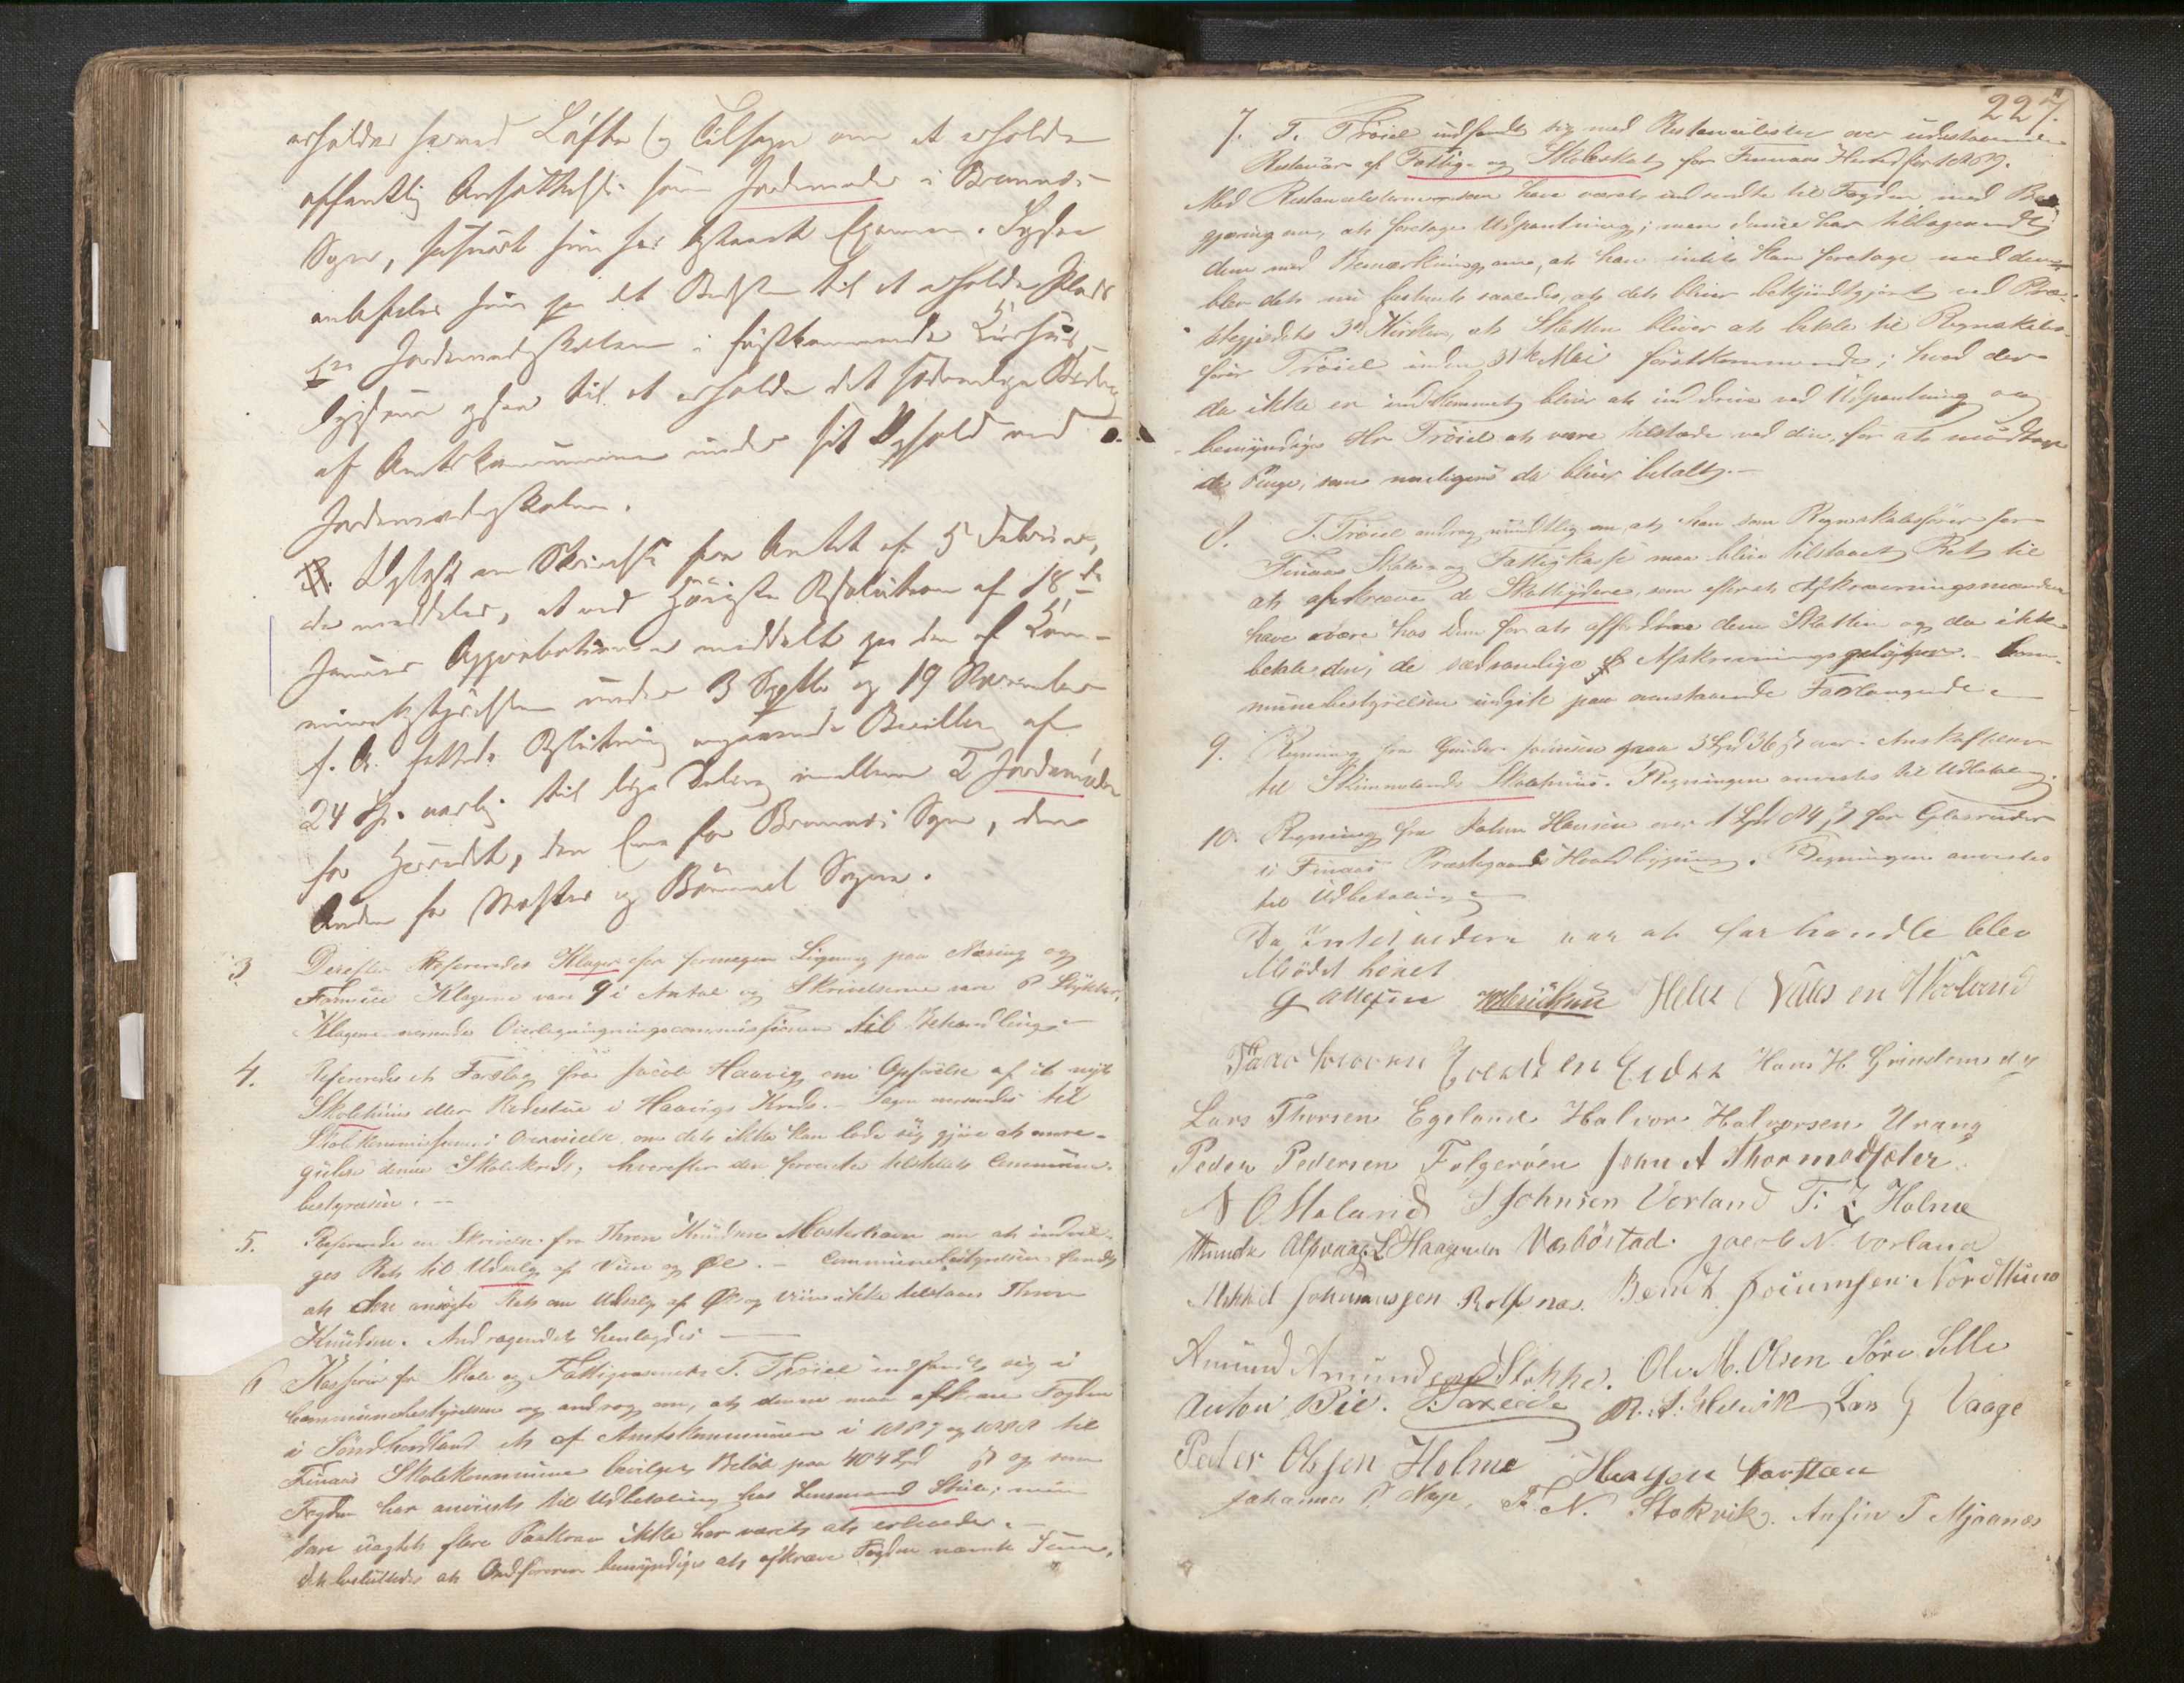 erholder herved Løfte og Tilsagn om at erholde
offentlig Ansættelse som Jordemoder i Bremnes
Sogn, saasnart hun har bestaaet Examen. Ligesaa
anbefales hun paa det Bedste til at erholde Plads
paa Jordemoderskolen i førstkommende Kursus,
ligesom ogsaa til at erholde det sædvanlige Bidrag
af Amtskommunen under sit Ophold ved
Jordemoderskolen.
Oplæst en Skrivelse fra Amtet af 5 Februar,
der meddeler, at ved Høieste Resolution af 18de
Januar Approbation er meddelt paa den af Kom-
munebestyrelsen under 3 Septbr og 19 November
f. A. fattede Beslutning angaaende Bevilling af
24 Spd. aarlig til lige Deling imellem 2 Jordemødre
for Herredet, den Ene for Bremnes Sogn, den
Anden for Moster og Bømmel Sogne.
3 Derefter Refereredes Klager over formegen Ligning paa Næring og
Formue Klagerne vare 9 i Antal og Skrivelserne vare 8 Stykker.
Klagerne oversendes Overligningscommissionen til Behandling.
4. Refereredes et Forslag fra Jacob Haavig om Opførelse af et nyt
Skolehuus eller Rodestue i Haavigs Kreds. - Sagen oversendes til
Skolekommissionens Overveielse, om det ikke kan lade sig gjøre at omre-
gulere denne Skolekreds; hvorefter den forventes tilstillet Commune-
bestyrelsen. -
5. Refereredes en Skrivelse fra Thron Knudsen Mosterhavn om at indvil-
ges Ret til Udsalg af Viin og Øl. - Communebestyrelsen fandt
at den ansøgte Ret om Udsalg af Øl og Viin ikke tilstaaes Thron
Knudsen. Andragendet henlægges
6 Kasserer for Skole og Fattigvæsenet T. Trøiel indfandt sig i
Communebestyrelsen og androg om, at denne maa afkræve Fogden
i Søndhordland et af Amtskommunen i 1887 og 1888 til
Finaas Skolekommune bevilget Beløb paa 404 Spd ß og som
Fogden har anvist til Udbetaling hos Lensmand Stule; men
som uagtet flere Paakrav ikke har været at erholde. -
Det besluttedes at Ordføreren bemyndiges at afkræve Fogden nævnte Sum.
227.
7. T. Trøiel indfandt sig med Restancelister over udestaaende
Restancer af Fattig- og Skoleskat for Finnaas Herred for 1869.
Med Restancelisterne som have været indsendte til Fogden med Be-
gjæring om, at foretage Udpantning; men denne har tilbagesendt
dem med Bemærkning om, at han intet kan foretage med dem,
blev det nu bestemt saaledes, at det bliver bekjendtgjort ved Præ-
stegjeldets 3de Kirker, at Skatten bliver at betale til Regnskabs-
fører Trøiel inden 31te Mai førstkommende; hvad der
da ikke er indkommet bliver at inddrive ved Udpantning og
bemyndiges Hr Trøiel at være tilstæde ved den for at modtage
de Penge, som muligens da bliver betalt. -
8. T. Trøiel androg mundtlig om, at han som Regnskabsfører for
Finaas Skole- og Fattigkasse maa blive tilstaaet Ret til
at afkræve de Skatteydere, som efterat Afkrævningsmanden
have være hos dem for at affordre dem Skatten og da ikke
betale den, de sædvanlige Afkrævningsgebyhrer. Kom-
munebestyrelsen indgik paa ovenstaaende Forlangende
9. Regning fra Gunder Joensen paa 3 Spd 36 ß over Anskaffelser
til Skimmelands Skolehuus. Regningen anvistes til Udbetaling.
10. Regning fra Johan Hansen over 1 Spd 84 ß for Glasruder
i Finaas Præstegaards Hovedbygning. Regningen anvistes
til Udbetaling
Da Intet videre var at forhandle blev
Mødet hævet
G Helge Nilsen Hovland
Hans H. Grindem
Lars Thorsen Egeland Halvor Halvorsen Urang
Peder Pedersen Folgerøen John A Thormodsæter.
N O Meland S Johnsen Vorland T. Z Holme
Alpvaag L Haagensen Vorbøstad. Jacob N. Vorland
Mikkel Johannesen Rolfsnes. Bernt Joensen Nordthuun
Amund Amundsen Stokke. Ole M. Olsen Søre Selle
Anton Bie. T. Taxeide R. S. Helvik Lars G Vaage
Peder Olsen Holme Haagen
Johannes P. T. N. Stokvik. Anfin T Mjaanæs